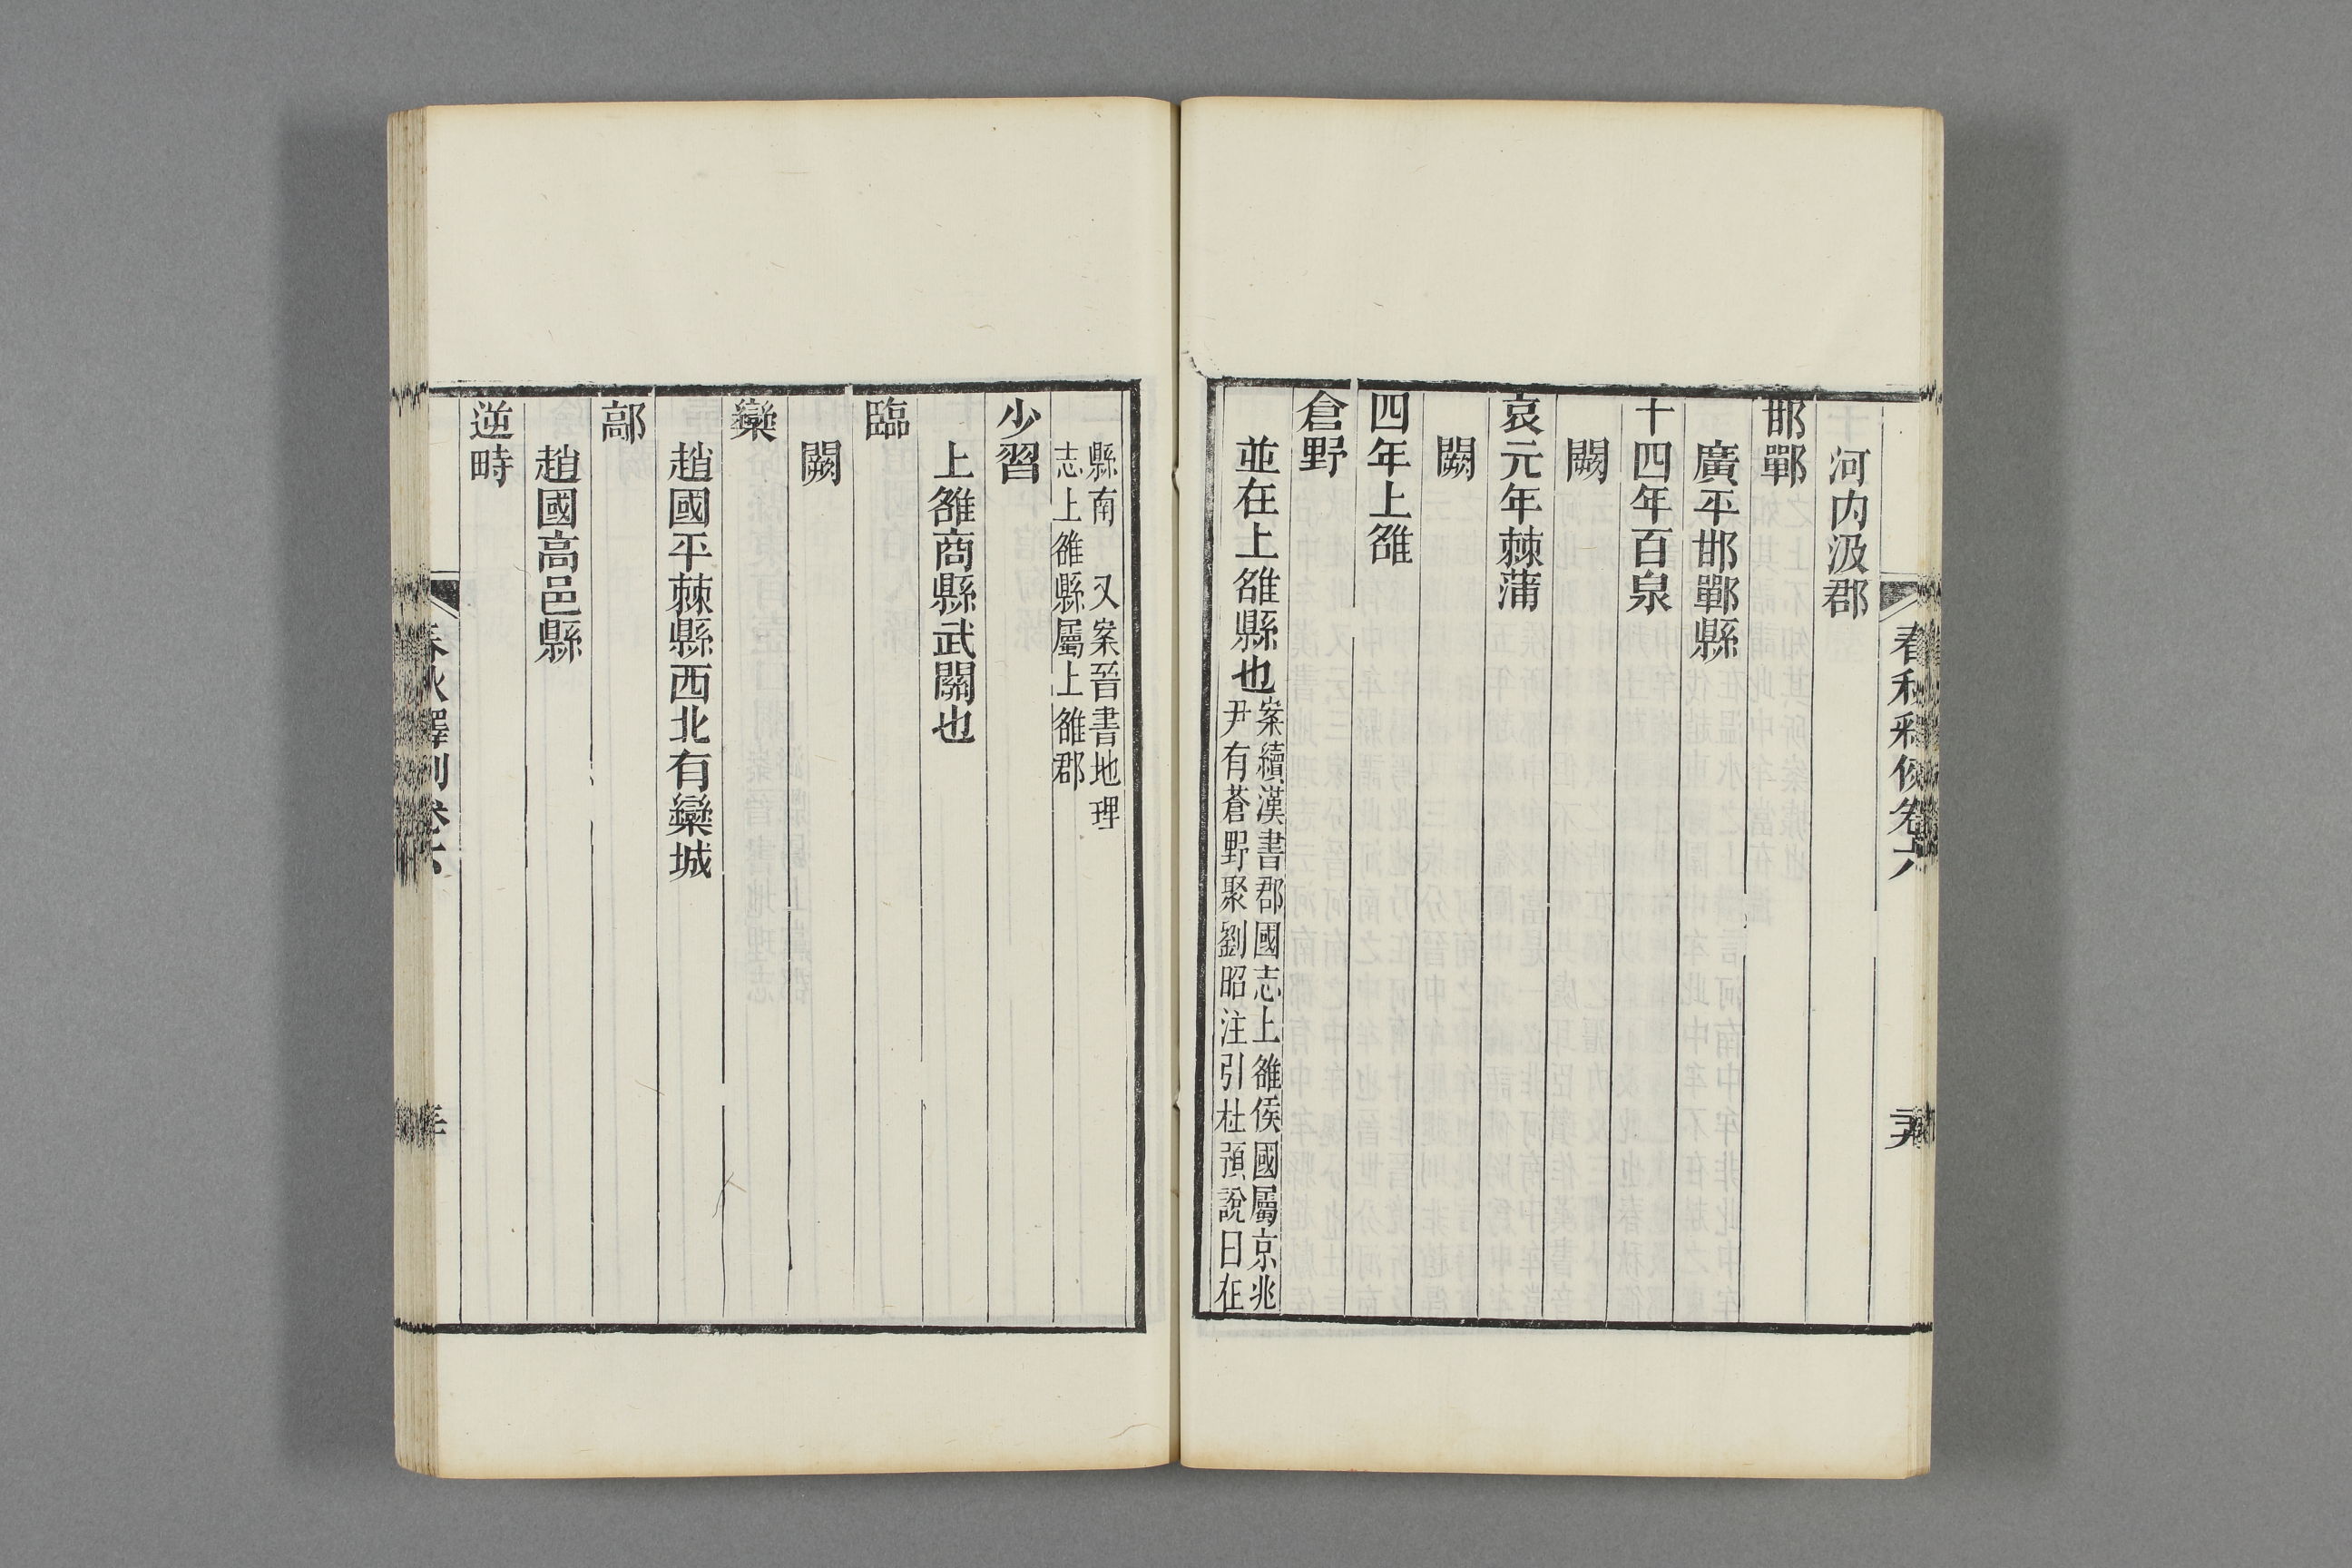 河内汲郡
邯鄲
廣平邯鄲縣
十四年百泉
闕
哀元年棘蒲
闕
四年上雒
倉野
並在上雒縣也案續漢書郡國志上雒侯國屬京兆
尹有蒼野聚劉昭注引杜預說曰在
縣南 又案晉書地理
志上雒縣屬上雒郡
少習
上雒商縣武關也
臨
闕
欒
趙國平棘縣西北有欒城
鄗
趙國高邑縣
逆畤
春秋釋例卷六